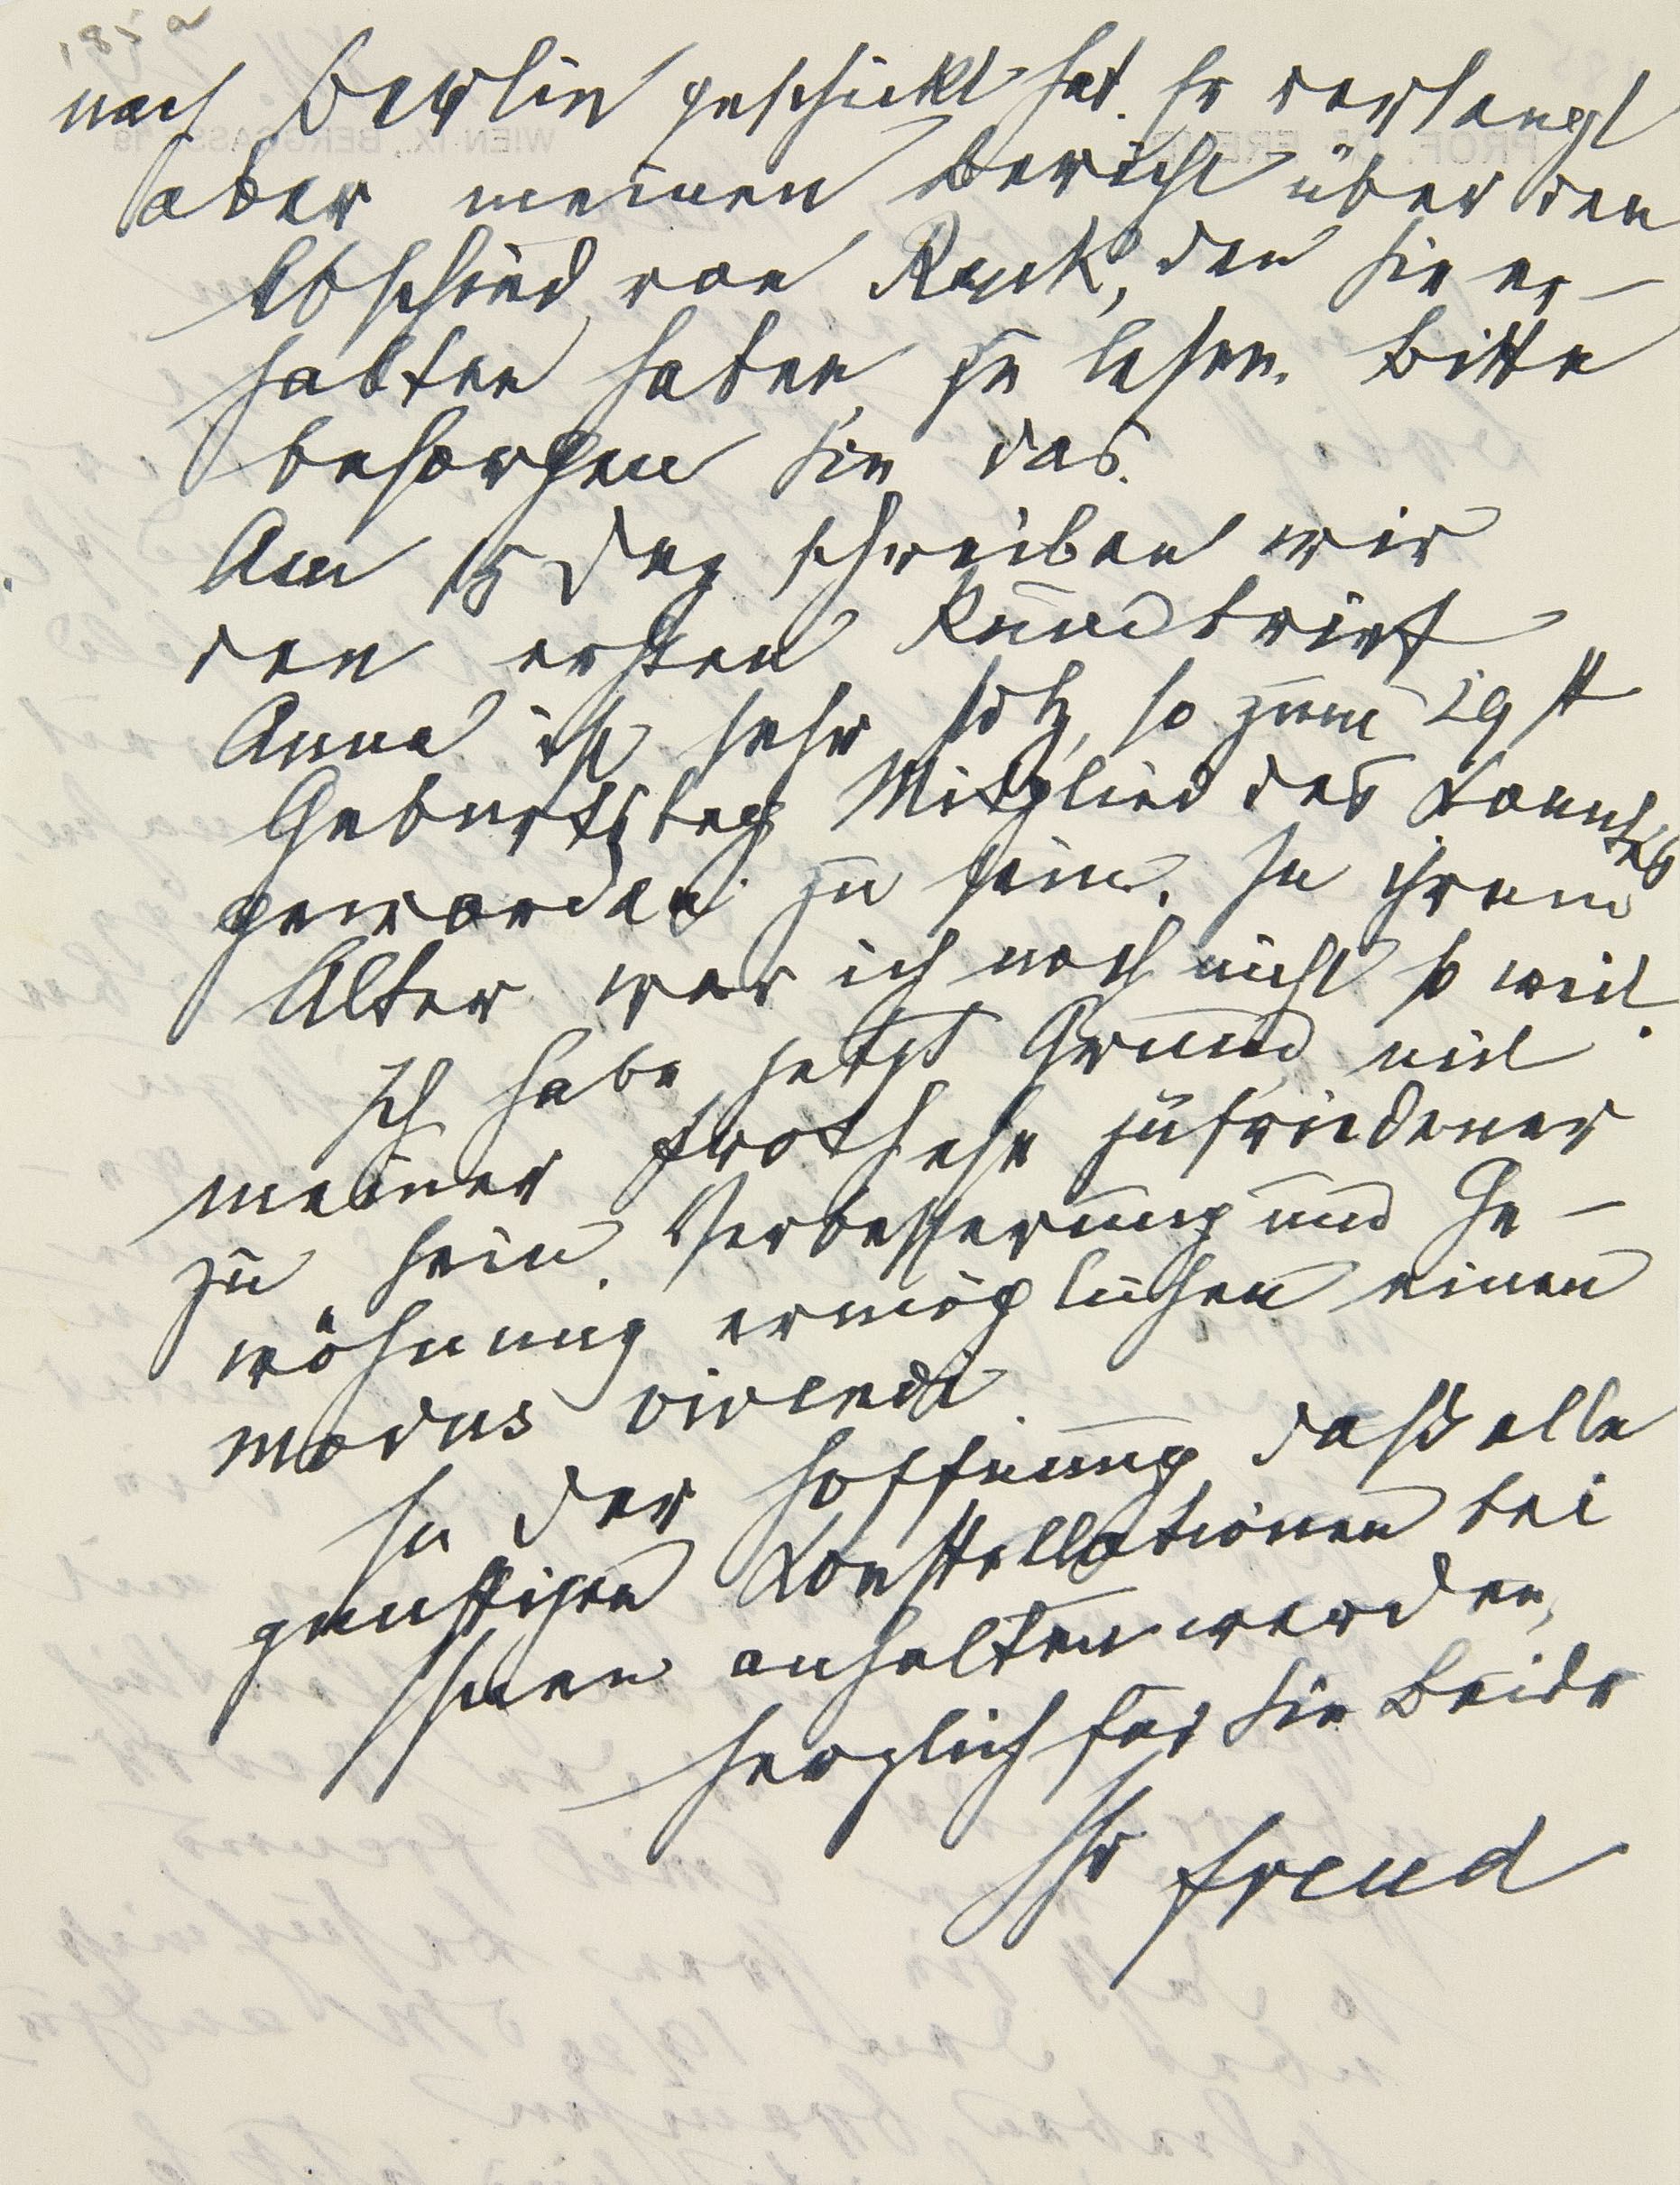 185 a
nach Berlin geschickt hat. Er verlangt
aber meinen Bericht über den
Abschied von Rank, den Sie er-
halten haben, zu lesen. Bitte
besorgen Sie das.
Am 15 Dez schreiben wir
den ersten Rundbrief
Anna ist sehr stolz, so zum 29st
Geburtstag Mitglied des Komites
geworden zu sein. In ihrem
Alter war ich noch nicht so weit.
Ich habe jetzt Grund mit
meiner Prothese zufriedener
zu sein. Verbesserung und Ge-
wöhnung ermöglichen einen
modus vivendi.
In der Hoffnung, daß alle
günstigen Konstellationen bei
Ihnen anhalten werden,
herzlich für Sie Beide
Ihr Freud
PROF. DR. FREUD
WIEN IX., BERGGASSE 19